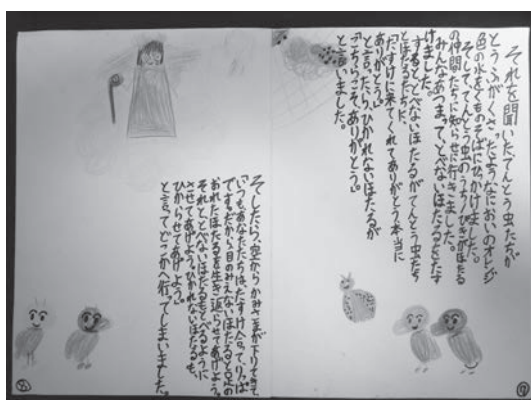 それを聞いたてんとう虫たちが
とうふがくさったようなにおいのオレンジ
色の水をくものそばにひっかけました。
そして、てんとう虫のうち、二ひきがほたる
の仲間たちに知らせに行きました。
みんなあつまって、とべないほたるをたす
けました。
すると、とべないほたるがてんとう虫たち
とほたるたちに、
「たすけに来てくれてありがとう本当に
ありがとう。」
と言ったら、ひかれないほたるが
「こちらこそ、ありがとう。」
と言いました。
そしたら、空からかみさまが下りてきて、
「いつもあなたたちは、たすけ合って、りっぱ
です。だから目のみえないほたると足の
おれたほたるを生き返らせてあげよう。
それと、とべないほたるもとべるように
させてあげよう。ひかれないほたるも、
ひからせてあげよう。」
と言ってどこかへ行ってしまいました。